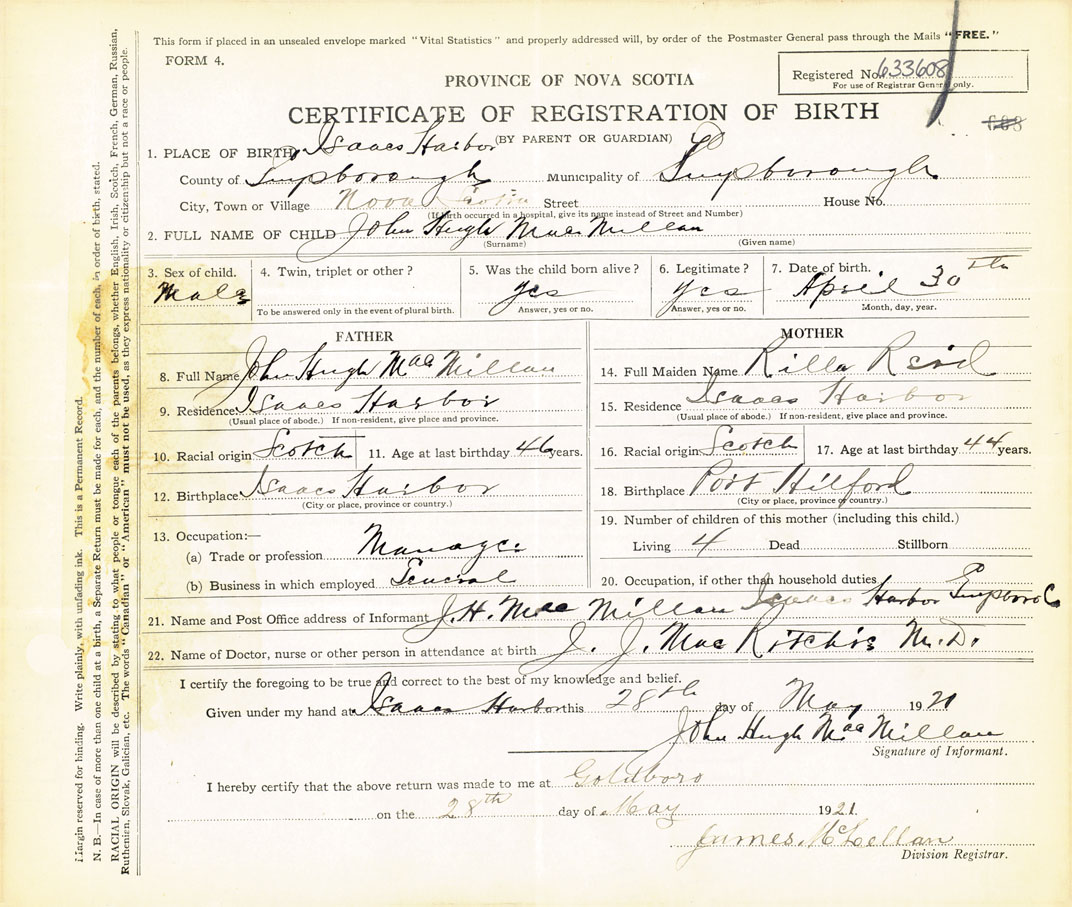 This form if placed in an unsealed envelope marked "Vital Statistics" and properly addressed will, by order of the Postmaster General pass through the Mails "FREE."
FORM 4.
Registered No. 633608
For use of Registrar General only.
PROVINCE OF NOVA SCOTIA
CERTIFICATE OF REGISTRATION OF BIRTH
(BY PARENT OR GUARDIAN)
1. PLACE OF BIRTH, Isaacs Harbor
County of Guysborough Municipality of Guysborough
City, Town or Village Nova Scotia Street House No.
(If birth occurred in a hospital, give its name instead of Street and Number)
2. FULL NAME OF CHILD John Hugh MacMillan
(Surname) (Given name)
3. Sex of child. Male
4. Twin, triplet or other?
To be answered only in the event of plural birth.
5. Was the child born alive? yes
Answer, yes or no.
6. Legitimate? yes
Answer, yes or no.
7. Date of birth. April 30th
Month, day, year.
FATHER
8. Full Name John Hugh MacMillan
9. Residence Isaacs Harbor
(Usual place of abode.) If non-resident, give place and province.
10. Racial origin Scotch 11. Age at last birthday 46 years.
12. Birthplace Isaacs Harbor
(City or place, province or country.)
13. Occupation:—
(a) Trade or profession Manager
(b) Business in which employed General
MOTHER
14. Full Maiden Name Rilla Reid
15. Residence Isaacs Harbor
(Usual place of abode.) If non-resident, give place and province.
16. Racial origin Scotch 17. Age at last birthday 44 years.
18. Birthplace Port Hilford
(City or place, province or country.)
19. Number of children of this mother (including this child.)
Living 4 Dead Stillborn
20. Occupation, if other than household duties
21. Name and Post Office address of Informant J. H. MacMillan Isaacs Harbor Guysboro Co
22. Name of Doctor, nurse or other person in attendance at birth J. J. MacRitchie M.D.
I certify the foregoing to be true and correct to the best of my knowledge and belief.
Given under my hand at Isaacs Harbor this 28th day of May 1921
John Hugh MacMillan
Signature of Informant.
I hereby certify that the above return was made to me at Goldboro
on the 28th day of May 1921.
James McLellan
Division Registrar.
Margin reserved for binding. Write plainly, with unfading ink. This is a Permanent Record.
N. B.—In case of more than one child at a birth, a Separate Return must be made for each, and the number of each, in order of birth, stated.
RACIAL ORIGIN will be described by stating to what people or tongue each of the parents belongs, whether English, Irish, Scotch, French, German, Russian,
Ruthenirn, Slovak, Galician, etc. The words "Canadian" or "American" must not be used, as they express nationality or citizenship but not a race or people.